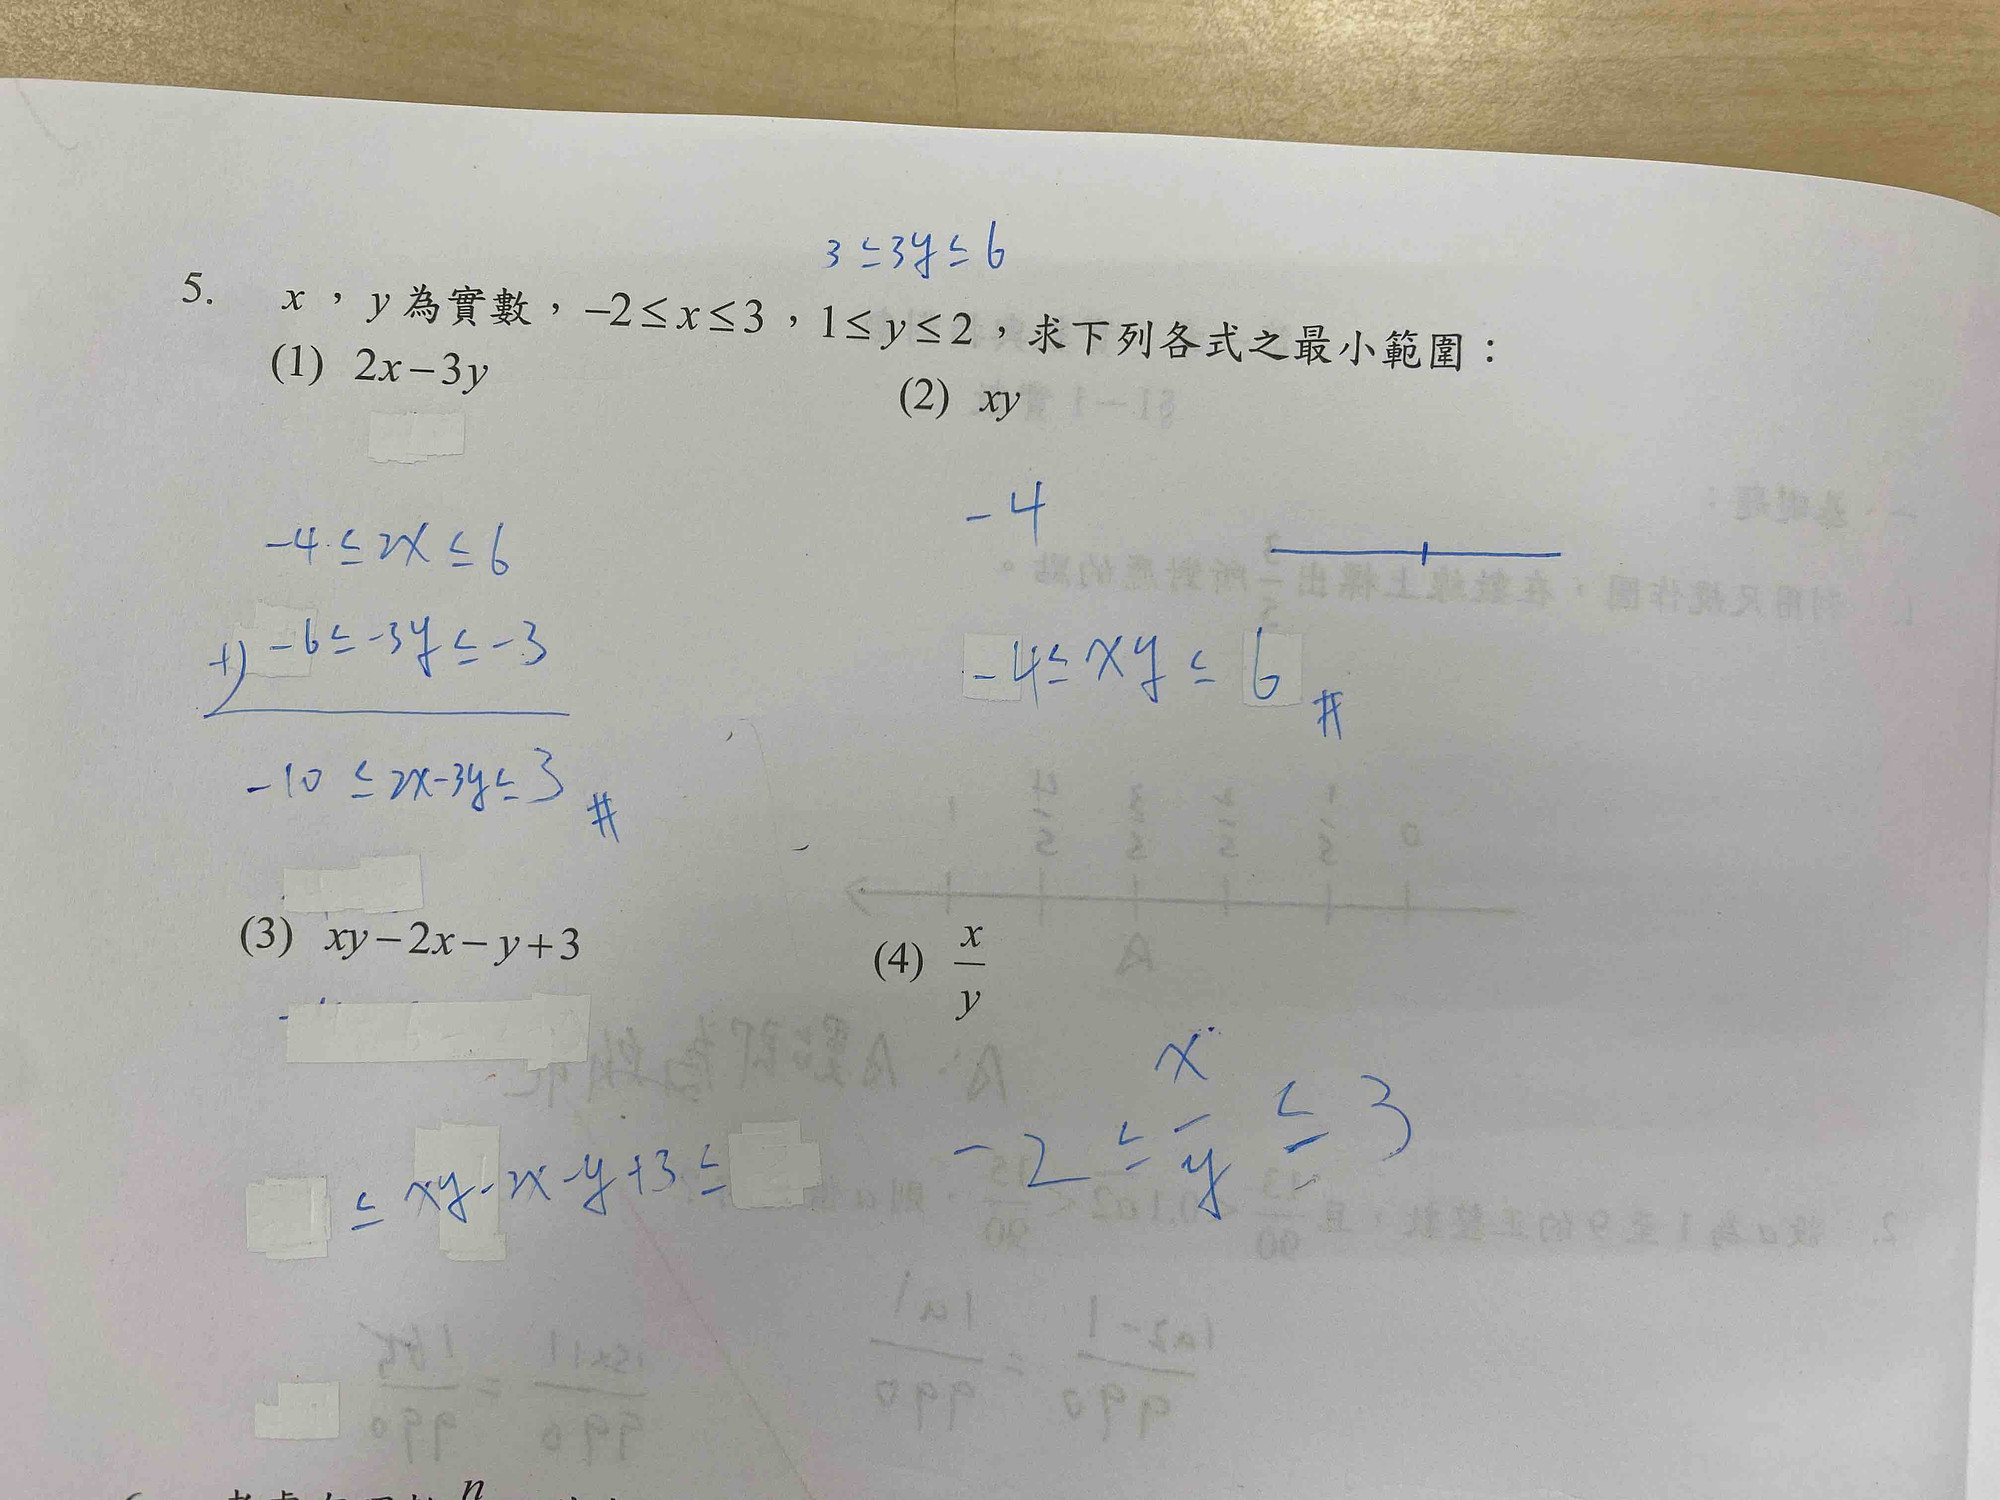 3 ≤ 3y ≤ 6
5. x，y為實數，−2≤x≤3，1≤y≤2，求下列各式之最小範圍：
(1) 2x−3y
(2) xy
-4 ≤ 2x ≤ 6
+) -6 ≤ -3y ≤ -3
-10 ≤ 2x-3y ≤ 3 #
-4
-4 ≤ xy ≤ 6 #
(3) xy−2x−y+3
(4) x/y
≤ xy-2x-y+3 ≤
-2 ≤ x/y ≤ 3